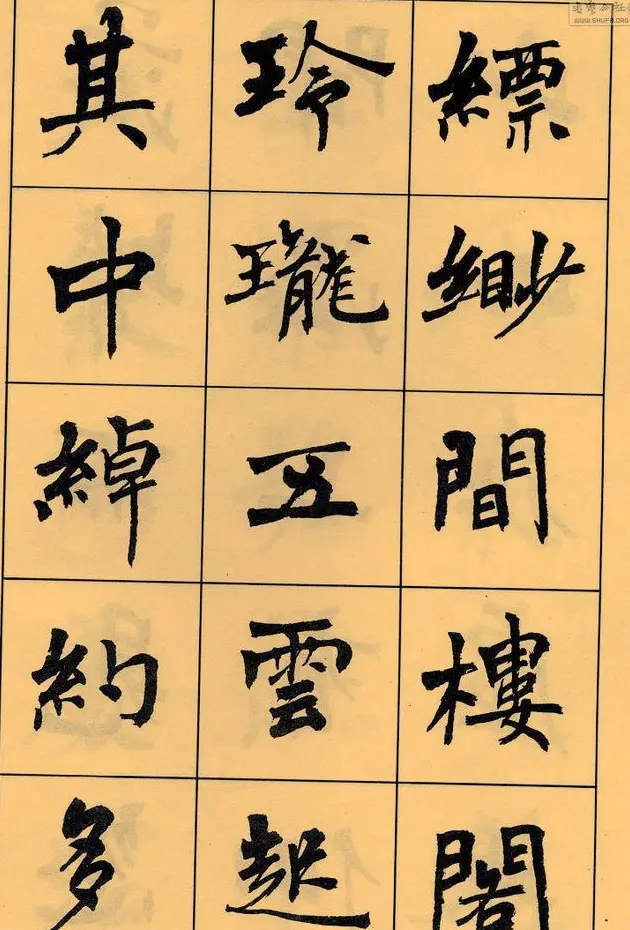 縹緲間樓閣
玲瓏五雲起
其中綽約多
WWW.SHUFA.ORG